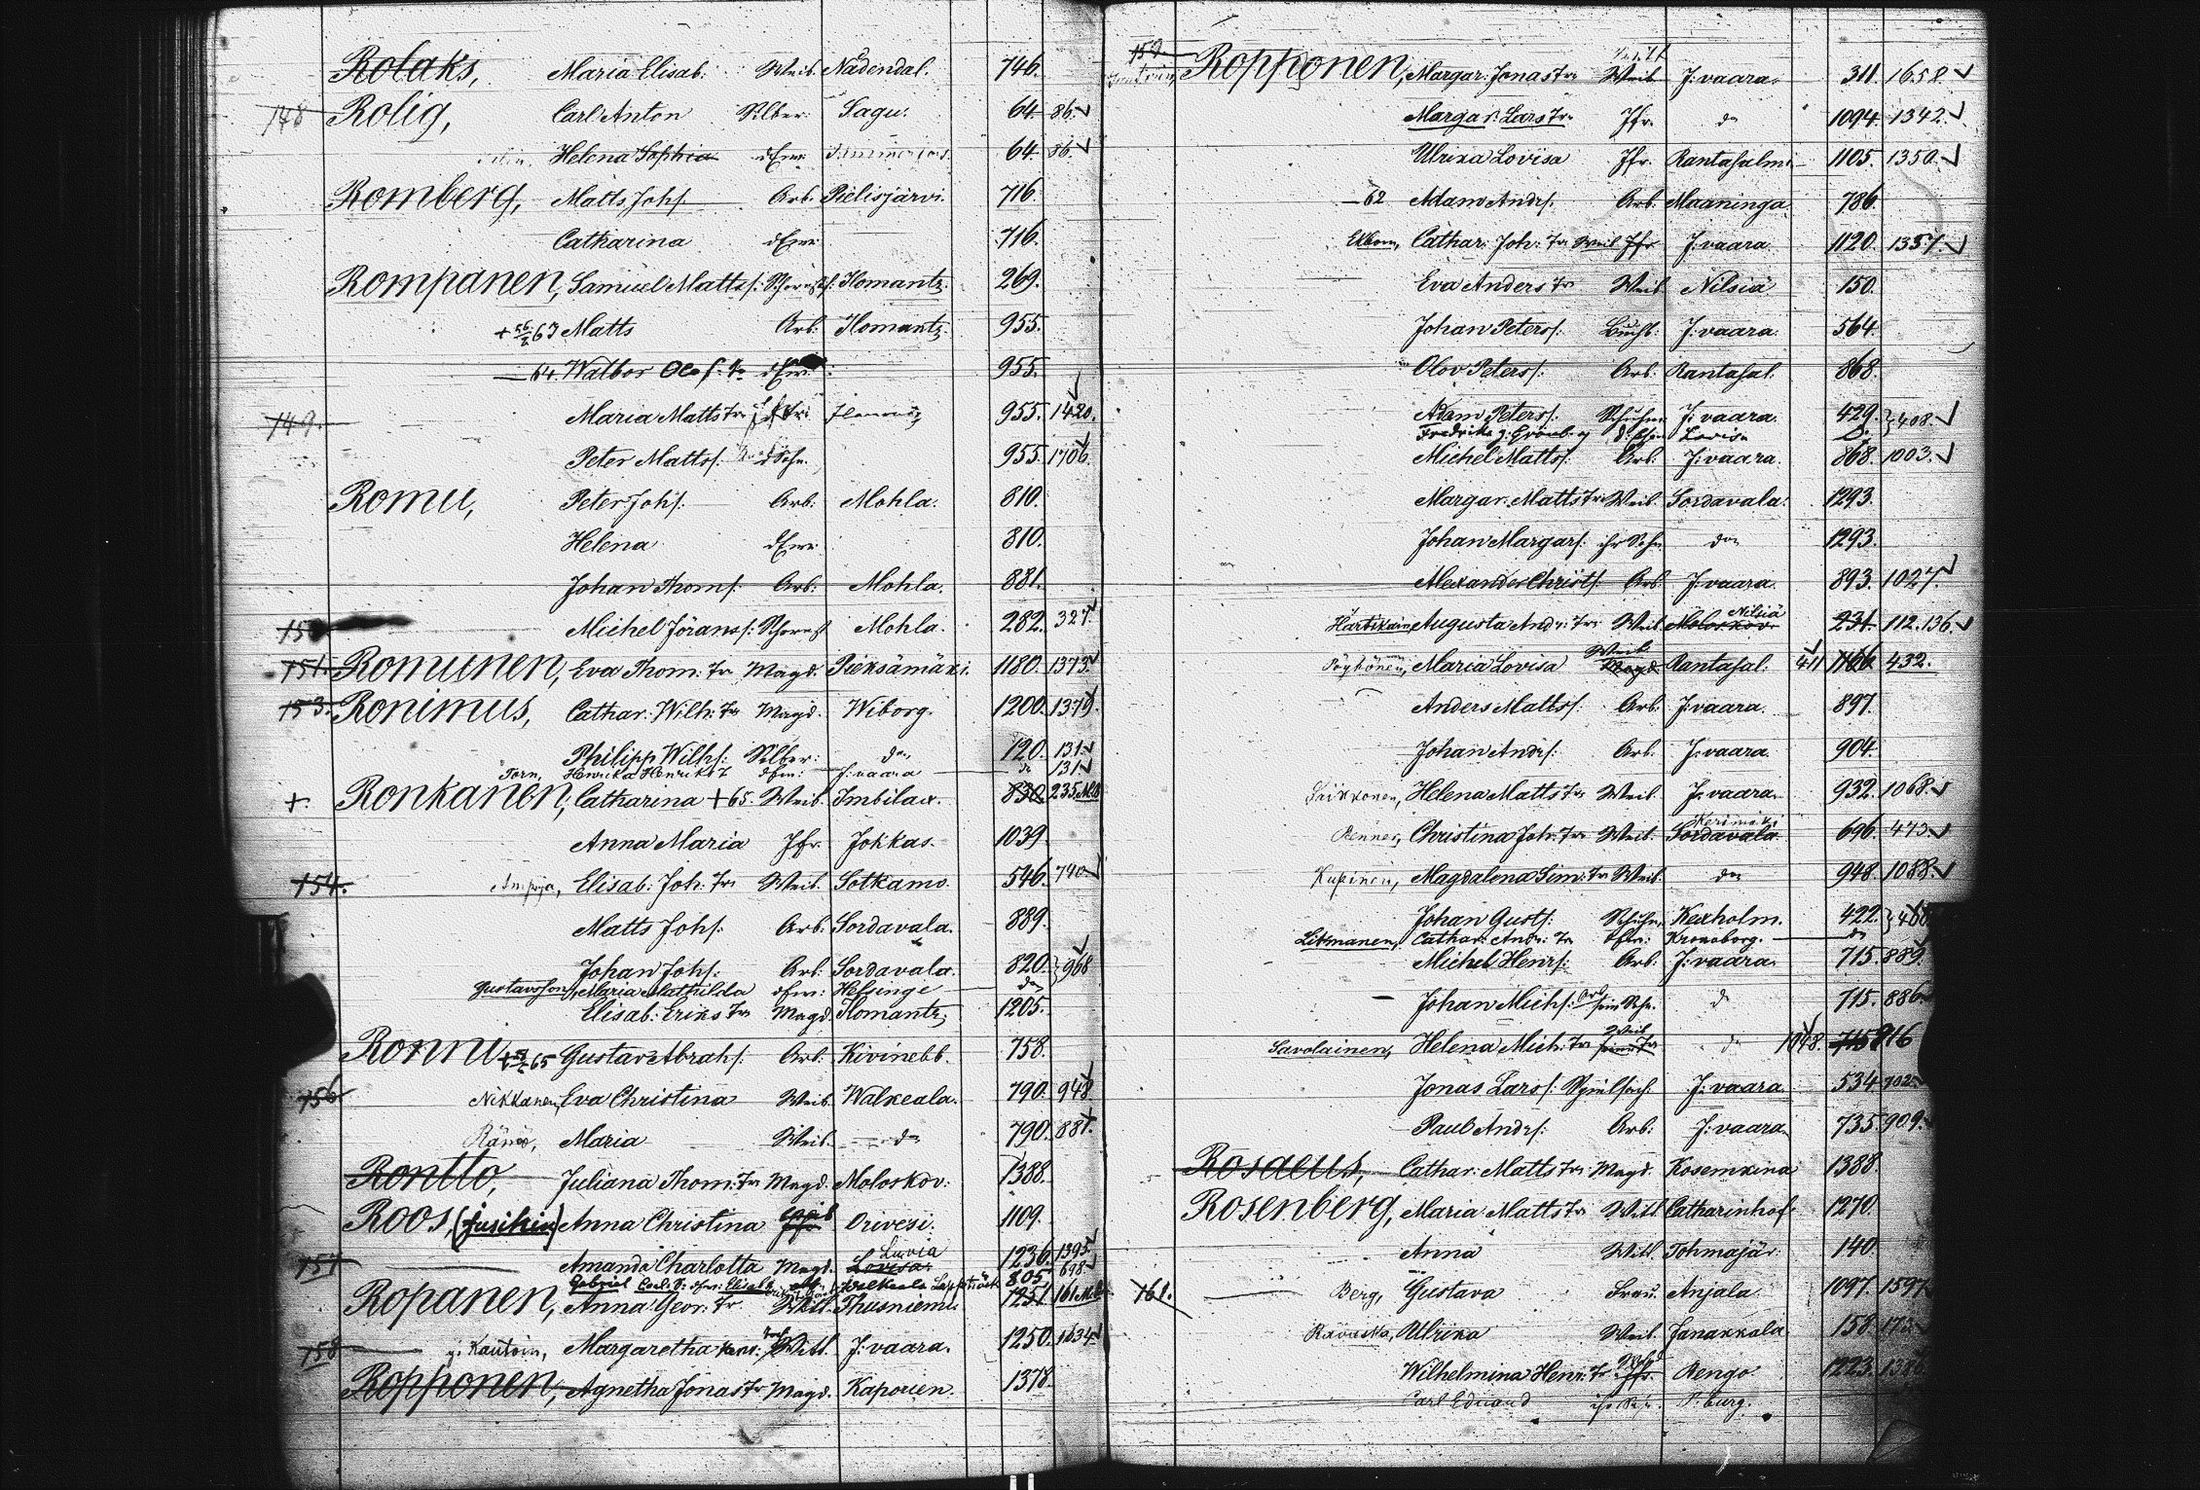 Rolaks, Maria Elisab: Weib. Nådendal. 746.
148 Rolig, Carl Anton Silber: Sagu. 64. 86.
Helena Sophia dEwe 64. 86.
Romberg, Matts Johs. Arb. Pielisjärvi. 716.
Catharina dEwe 716.
Rompanen, Samuel Matts: Ilomantz. 269.
+ 63 Matts Arb: Ilomantz. 955.
— 64. Walbor Olofs Tr dEwe: 955.
149. Maria Matts Tr 955. 1420.
Peter Mattss. dSohn. 955. 1706.
Romu, Peter Johs: Arb: Mohla. 810.
Helena dEwe 810.
Johan Thoms: Arb: Mohla. 881.
Michel Jöranss: Mohla. 282. 327.
151. Romunen, Eva Thom: Tr Magd. Pieksämäki. 1180. 1373.
153. Ronimus, Cathar: Wilh: Tr Magd. Wiborg. 1200. 1379.
Philipp Wilhs: Silber: do 120. 131.
Torn, Henrika Henriks T dEw: J:vaara do 131
+. Ronkanen, Catharina +65. Weib. Imbilax. 830 235
Anna Maria Jfr. Jokkas. 1039.
154. Elisab: Joh: Tr Weib. Sotkamo. 546. 790
Matts Johs: Arb. Sordavala. 889.
Johan Johs: Arb: Sordavala. 820. } 968
Gustavsson, Maria Mathilda dEw: Helsinge do
Elisab: Eriks Tr Magd. Ilomantz. 1205.
Ronni + 65 Gustav Abrahs: Arb. Kivinebb. 758.
156 Nikkanen, Eva Christina Weib. Walkeala. 790. 948
Maria Weib. do 790. 881.
Rontto, Juliana Thom: Tr Magd. Moloskov: 1388.
Roos, (Jusikin) Anna Christina Orivesi. 1109.
157 Amanda Charlotta Magd. Luvia Lovisa. 1236. 1395.
Gabriel Carls S: Walkeala Lappträsk 805 698
Ropanen, Anna Geor: Tr Witt. Thusniemi 1251. 161
158 g: Kautoin, Margaretha Witt. J:vaara. 1250. 1634
Ropponen, Agnetha Jonas Tr Magd. Kaporien. 1378.
159. Ropponen, Margar: Jonas Tr Weib J:vaara. 311. 1658.
Margar: Lars Tr Jfr. do 1094. 1342.
Ulrika Lovisa Jfr. Rantasalmi 1105. 1350.
— 62 Adam Andrs. Arb. Maaninga. 786.
Ekbom, Cathar: Joh: Tr Weib Jfr J:vaara. 1120. 1357.
Eva Anders Tr Weib Nilsiä 150.
Johan Peterss: Buchb: J:vaara. 564.
Olov Peterss: Arb: Rantasal. 868.
Adam Peterss: Schuhm J:vaara. 429. } 408.
Fredrika g: Grönberg Lovisa Do.
Michel Mattss: Arb: J:vaara. 868. 1003.
Margar: Matts Tr Weib. Sordavala. 1293.
Johan Margars: ihr Sohn do 1293.
Alexander Christs: Arb. J:vaara. 893. 1027.
Hartikain, Augusta Andr: Tr Weib Nilsiä Moloskov. 231. 112. 136.
Pöyhönen, Maria Lovisa Weib Magd. Rantasal. 411 1166. 432.
Anders Mattss: Arb. J:vaara. 897.
Johan Andrs: Arb. J:vaara. 904.
Helena Matts Tr Weib. J:vaara. 932. 1068.
Renner, Christina Joh: Tr Weib. Kerimäki Sordavala 696. 473.
Kupinen, Magdalena Sim: Tr Weib. do 948. 1088.
Johan Gusts: Schuhm, Kexholm. 422. }
Litmanen, Cathar: Andr: Tr Kronoborg. do
Michel Henrs: Arb: J:vaara. 715. 889.
— Johan Michs: Arb sein Sohn. do 715. 886.
Savolainen, Helena Mich: Tr Weib do 1048. 715 916
Jonas Larss: J:vaara. 534 702
Paul Andrs: Arb: J:vaara 735. 909.
Rosaeus, Cathar: Matts Tr Magd. Kosemkina 1388.
Rosenberg, Maria Matts Tr Witt Catharinhof. 1270.
Anna Witt. Tohmajär. 140.
161. Berg, Gustava Frau. Anjala. 1097. 1597
Ulrika Weib. Janakkala. 158. 173
Wilhelmina Henr: Tr Jfr. Rengo. 1223. 1386
Carl Eduard P:burg.